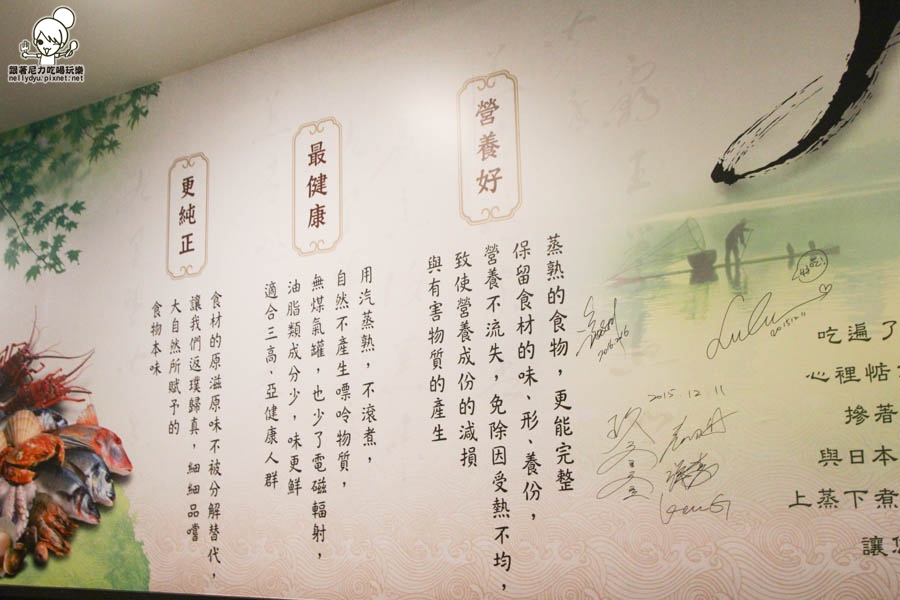 跟著尼力吃喝玩樂
nellydyu.pixnet.net
營養好
蒸熟的食物，更能完整
保留食材的味、形、養份，
營養不流失，免除因受熱不均，
致使營養成份的減損
與有害物質的產生
最健康
用汽蒸熟，不滾煮，
自然不產生嘌呤物質，
無煤氣罐，也少了電磁輻射，
油脂類成分少，味更鮮
適合三高、亞健康人群
更純正
食材的原滋原味不被分解替代，
讓我們返璞歸真，細細品嚐
大自然所賦予的
食物本味
吃遍了
心裡惦
摻著
與日本
上蒸下煮
讓
Lulu
2015.12.11
2015.12.11